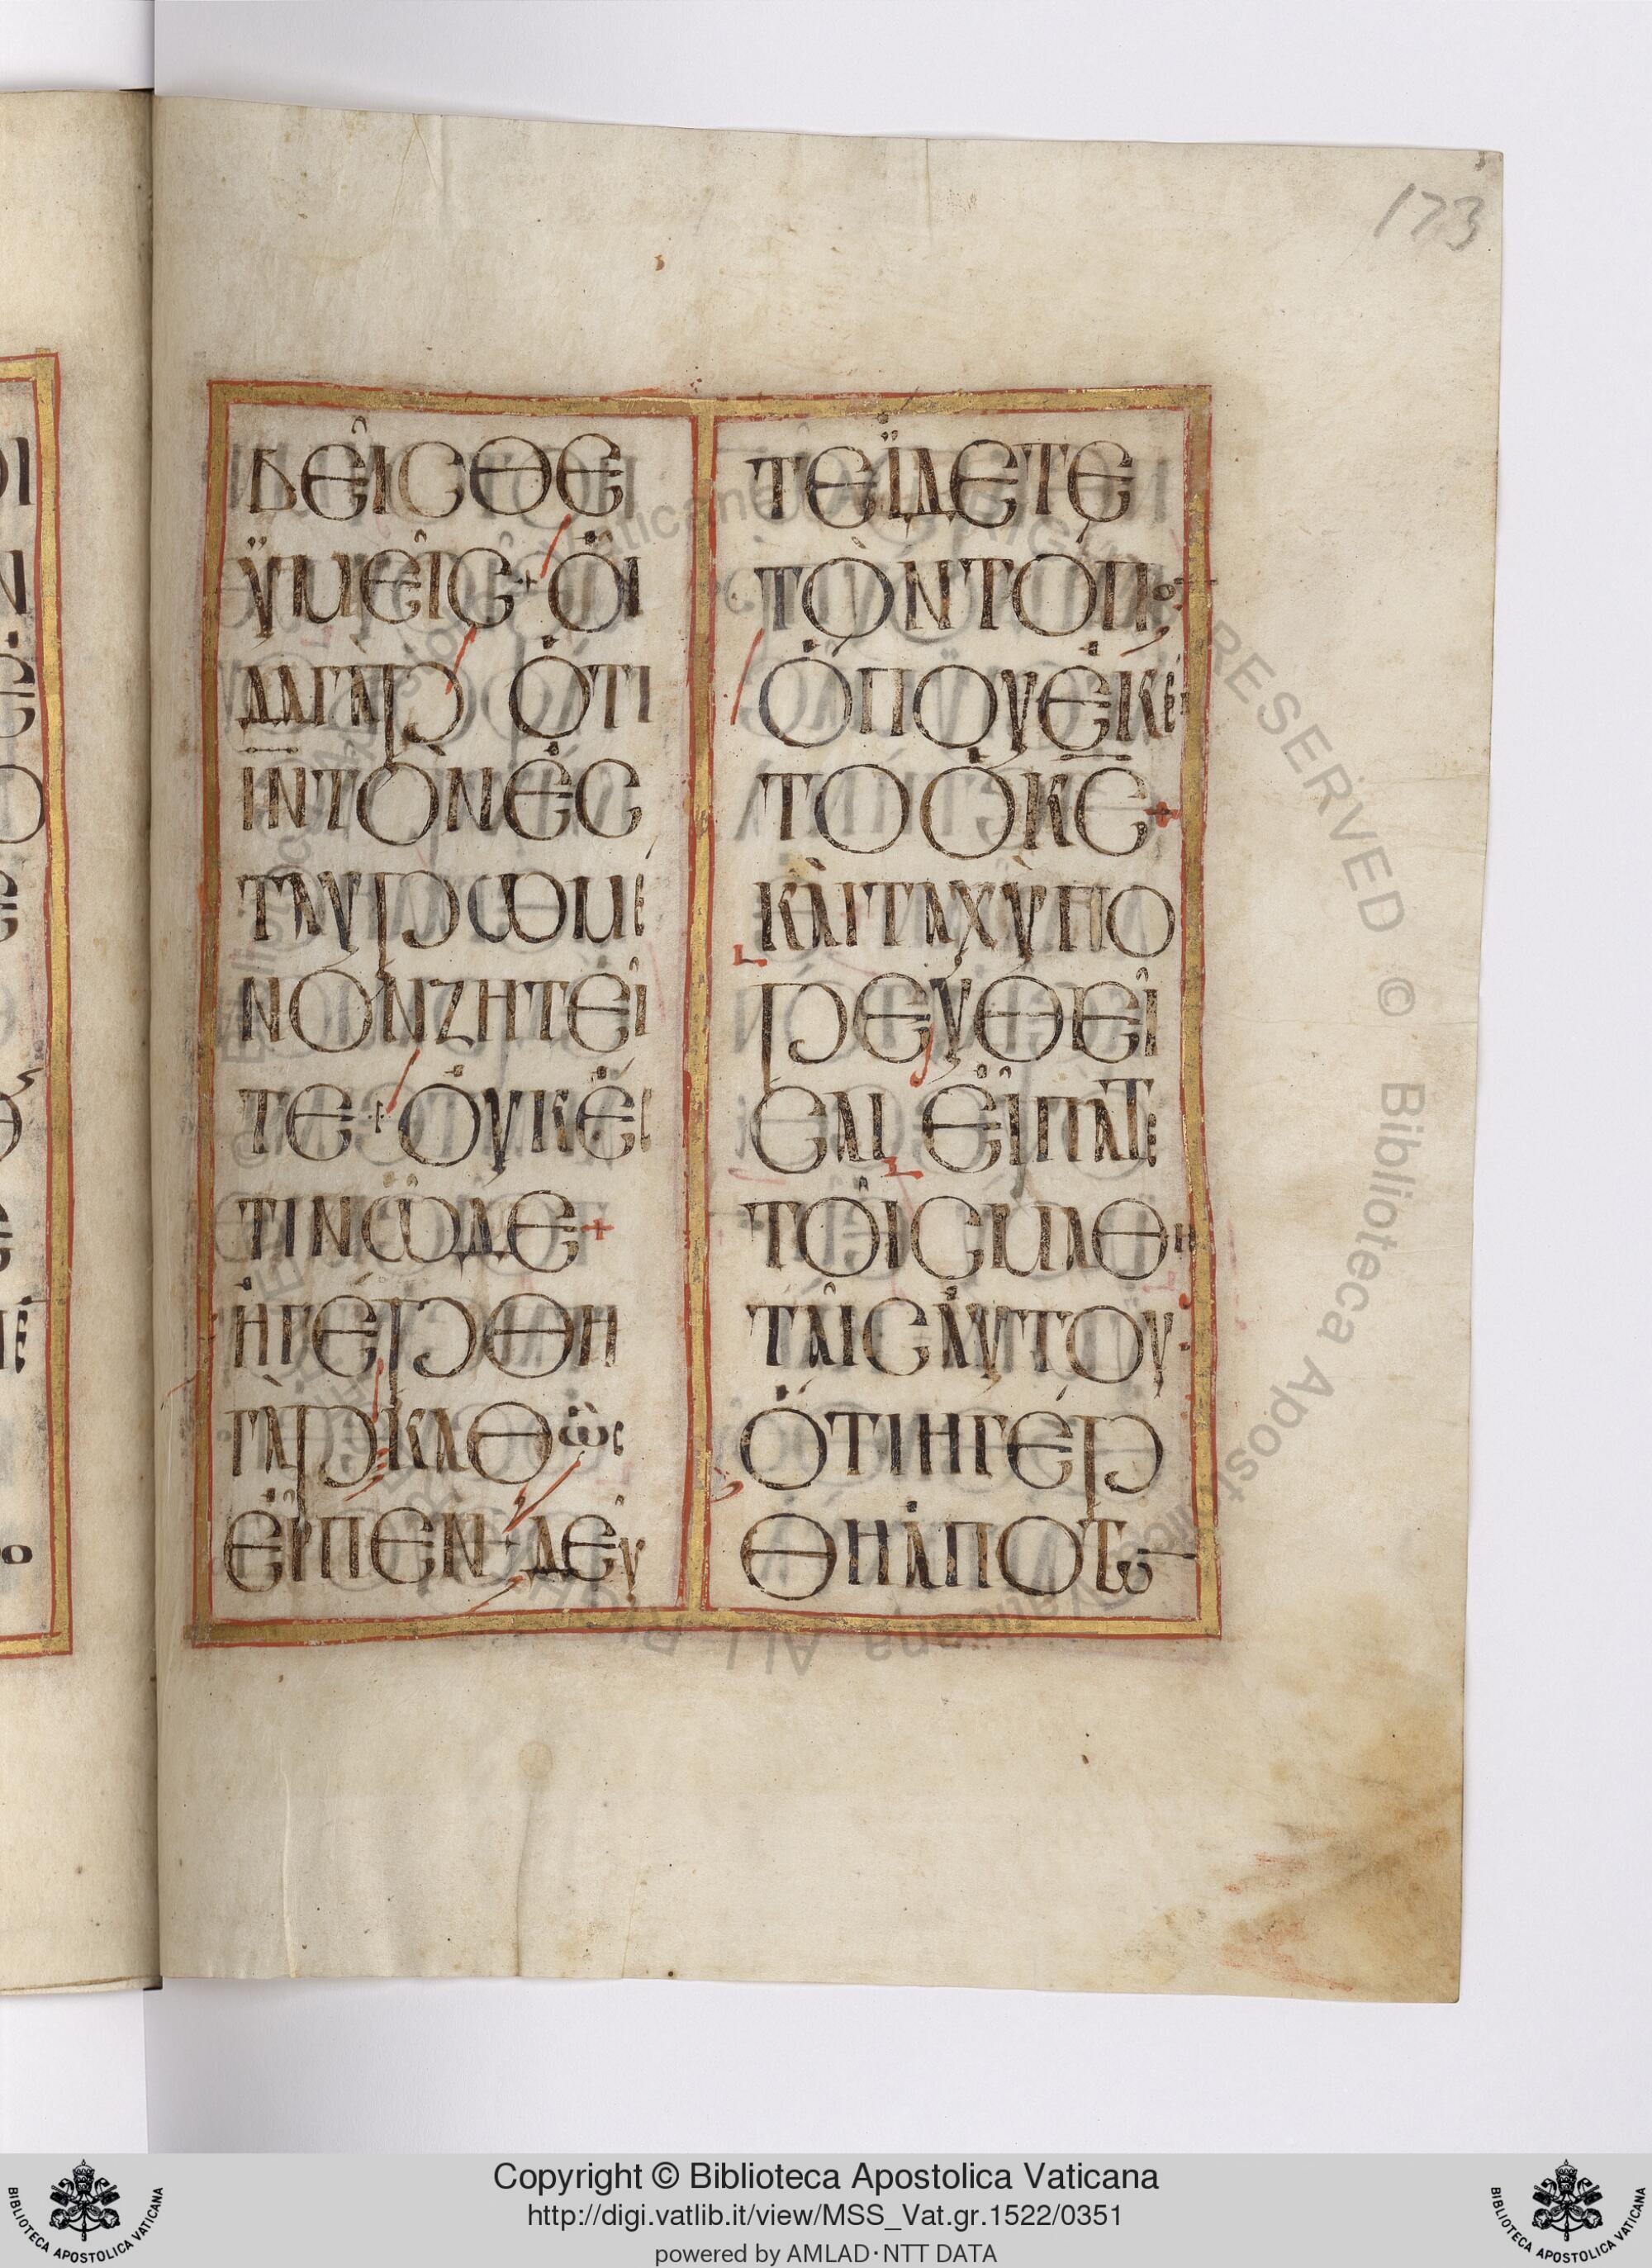 173
ΒΕΙΣΘΕ
ΫΜΕΙΣ + ΟΙ
ΔΑΓΑΡ ΟΤΙ
ΙΝ ΤΟΝ ΕΣ
ΤΑΥΡΩΜΕ
ΝΟΝ ΖΗΤΕΙ
ΤΕ + ΟΥΚ ΕΣ
ΤΙΝ ΩΔΕ +
ΗΓΕΡΘΗ
ΓΑΡ ΚΑΘΩΣ
ΕΙΠΕΝ + ΔΕΥ
ΤΕ ΙΔΕΤΕ
ΤΟΝ ΤΟΠΟ
ΟΠΟΥ ΕΚΕΙ
ΤΟ Ο ΚΣ +
ΚΑΙ ΤΑΧΥ ΠΟ
ΡΕΥΘΕΙ
ΣΑΙ ΕΙΠΑΤΕ
ΤΟΙΣ ΜΑΘΗ
ΤΑΙΣ ΑΥΤΟΥ
ΟΤΙ ΗΓΕΡ
ΘΗ ΑΠΟ Τω
Copyright © Biblioteca Apostolica Vaticana
http://digi.vatlib.it/view/MSS_Vat.gr.1522/0351
powered by AMLAD·NTT DATA
BIBLIOTECA APOSTOLICA VATICANA
BIBLIOTECA APOSTOLICA VATICANA